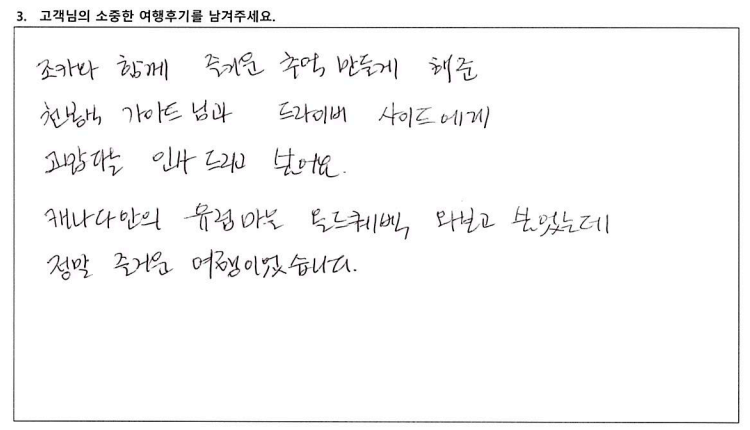 3. 고객님의 소중한 여행후기를 남겨주세요.
조카와 함께 즐거운 추억 만들게 해준
천봉백 가이드님과 드라이버 사이드에게
고맙다는 인사 드리고 싶어요.
캐나다안의 유럽마을 올드퀘벡, 와보고 싶었는데
정말 즐거운 여행이었습니다.